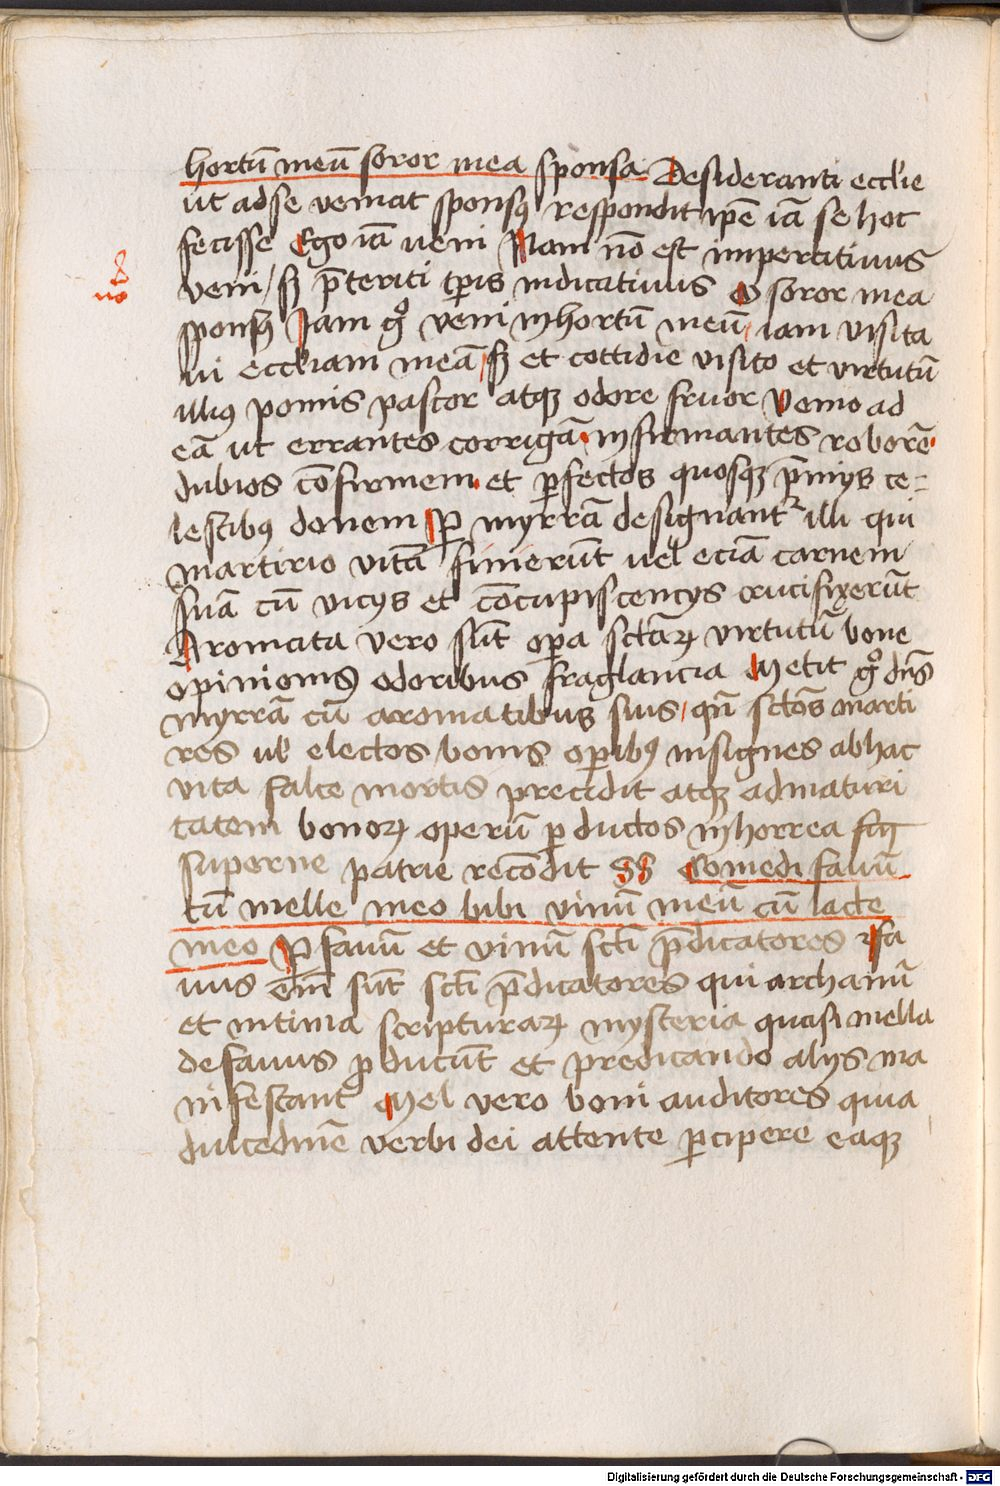 hortū meū soror mea sponsa Desideranti eccl̄ie
ut ad se veniat sponsꝰ respondit ip̄e iā se hoc
fecisse Ego iā veni Nam nō est imperatiuus
veni / sꝫ p̄teriti tꝑis indicatiuus O soror mea
sponsa Jam gͦ veni in hortū meū / iam visita
ui eccl̄iam meā / sꝫ et cottidie visito et virtutū
illiꝰ pomis pascor atqꝫ odore fruor Venio ad
eā ut errantes corrigā · infirmantes roborē ·
dubios cōfirmem · et ꝑfectos quosqꝫ p̄mijs ce=
lestibꝰ donem Per myrrā designant᷑ illi qui
martirio vitā finierūt uel eciā carnem
suā cū vicijs et cōcupiscencijs crucifixerūt
Aromata vero sūt oꝑa sctāꝝ virtutū bone
opinionis odoribus fraglancia Metit gͦ dn̄s
myrrā cū aromatibus suis / qn̄ sctōs marti
res ul̄ electos bonis oꝑibꝰ insignes ab hac
vita falce mortis precidit atqꝫ ad maturi
tatem bonoꝝ operū ꝑductos in horrea
superne patrie recōdit Comedi fauū
cū melle meo bibi vinū meū cū lacte
meo Per fauū et vinū sctī p̄dicatores fa
uus em̄ sūt sctī p̄dicatores qui archanū
et intima scripturaꝝ mysteria quasi mella
de fauus ꝓducūt et predicando alijs ma
nifestant Mel vero boni auditores quia
dulcedinē verbi dei attente ꝑcipere eaqꝫ
Digitalisierung gefördert durch die Deutsche Forschungsgemeinschaft - DFG